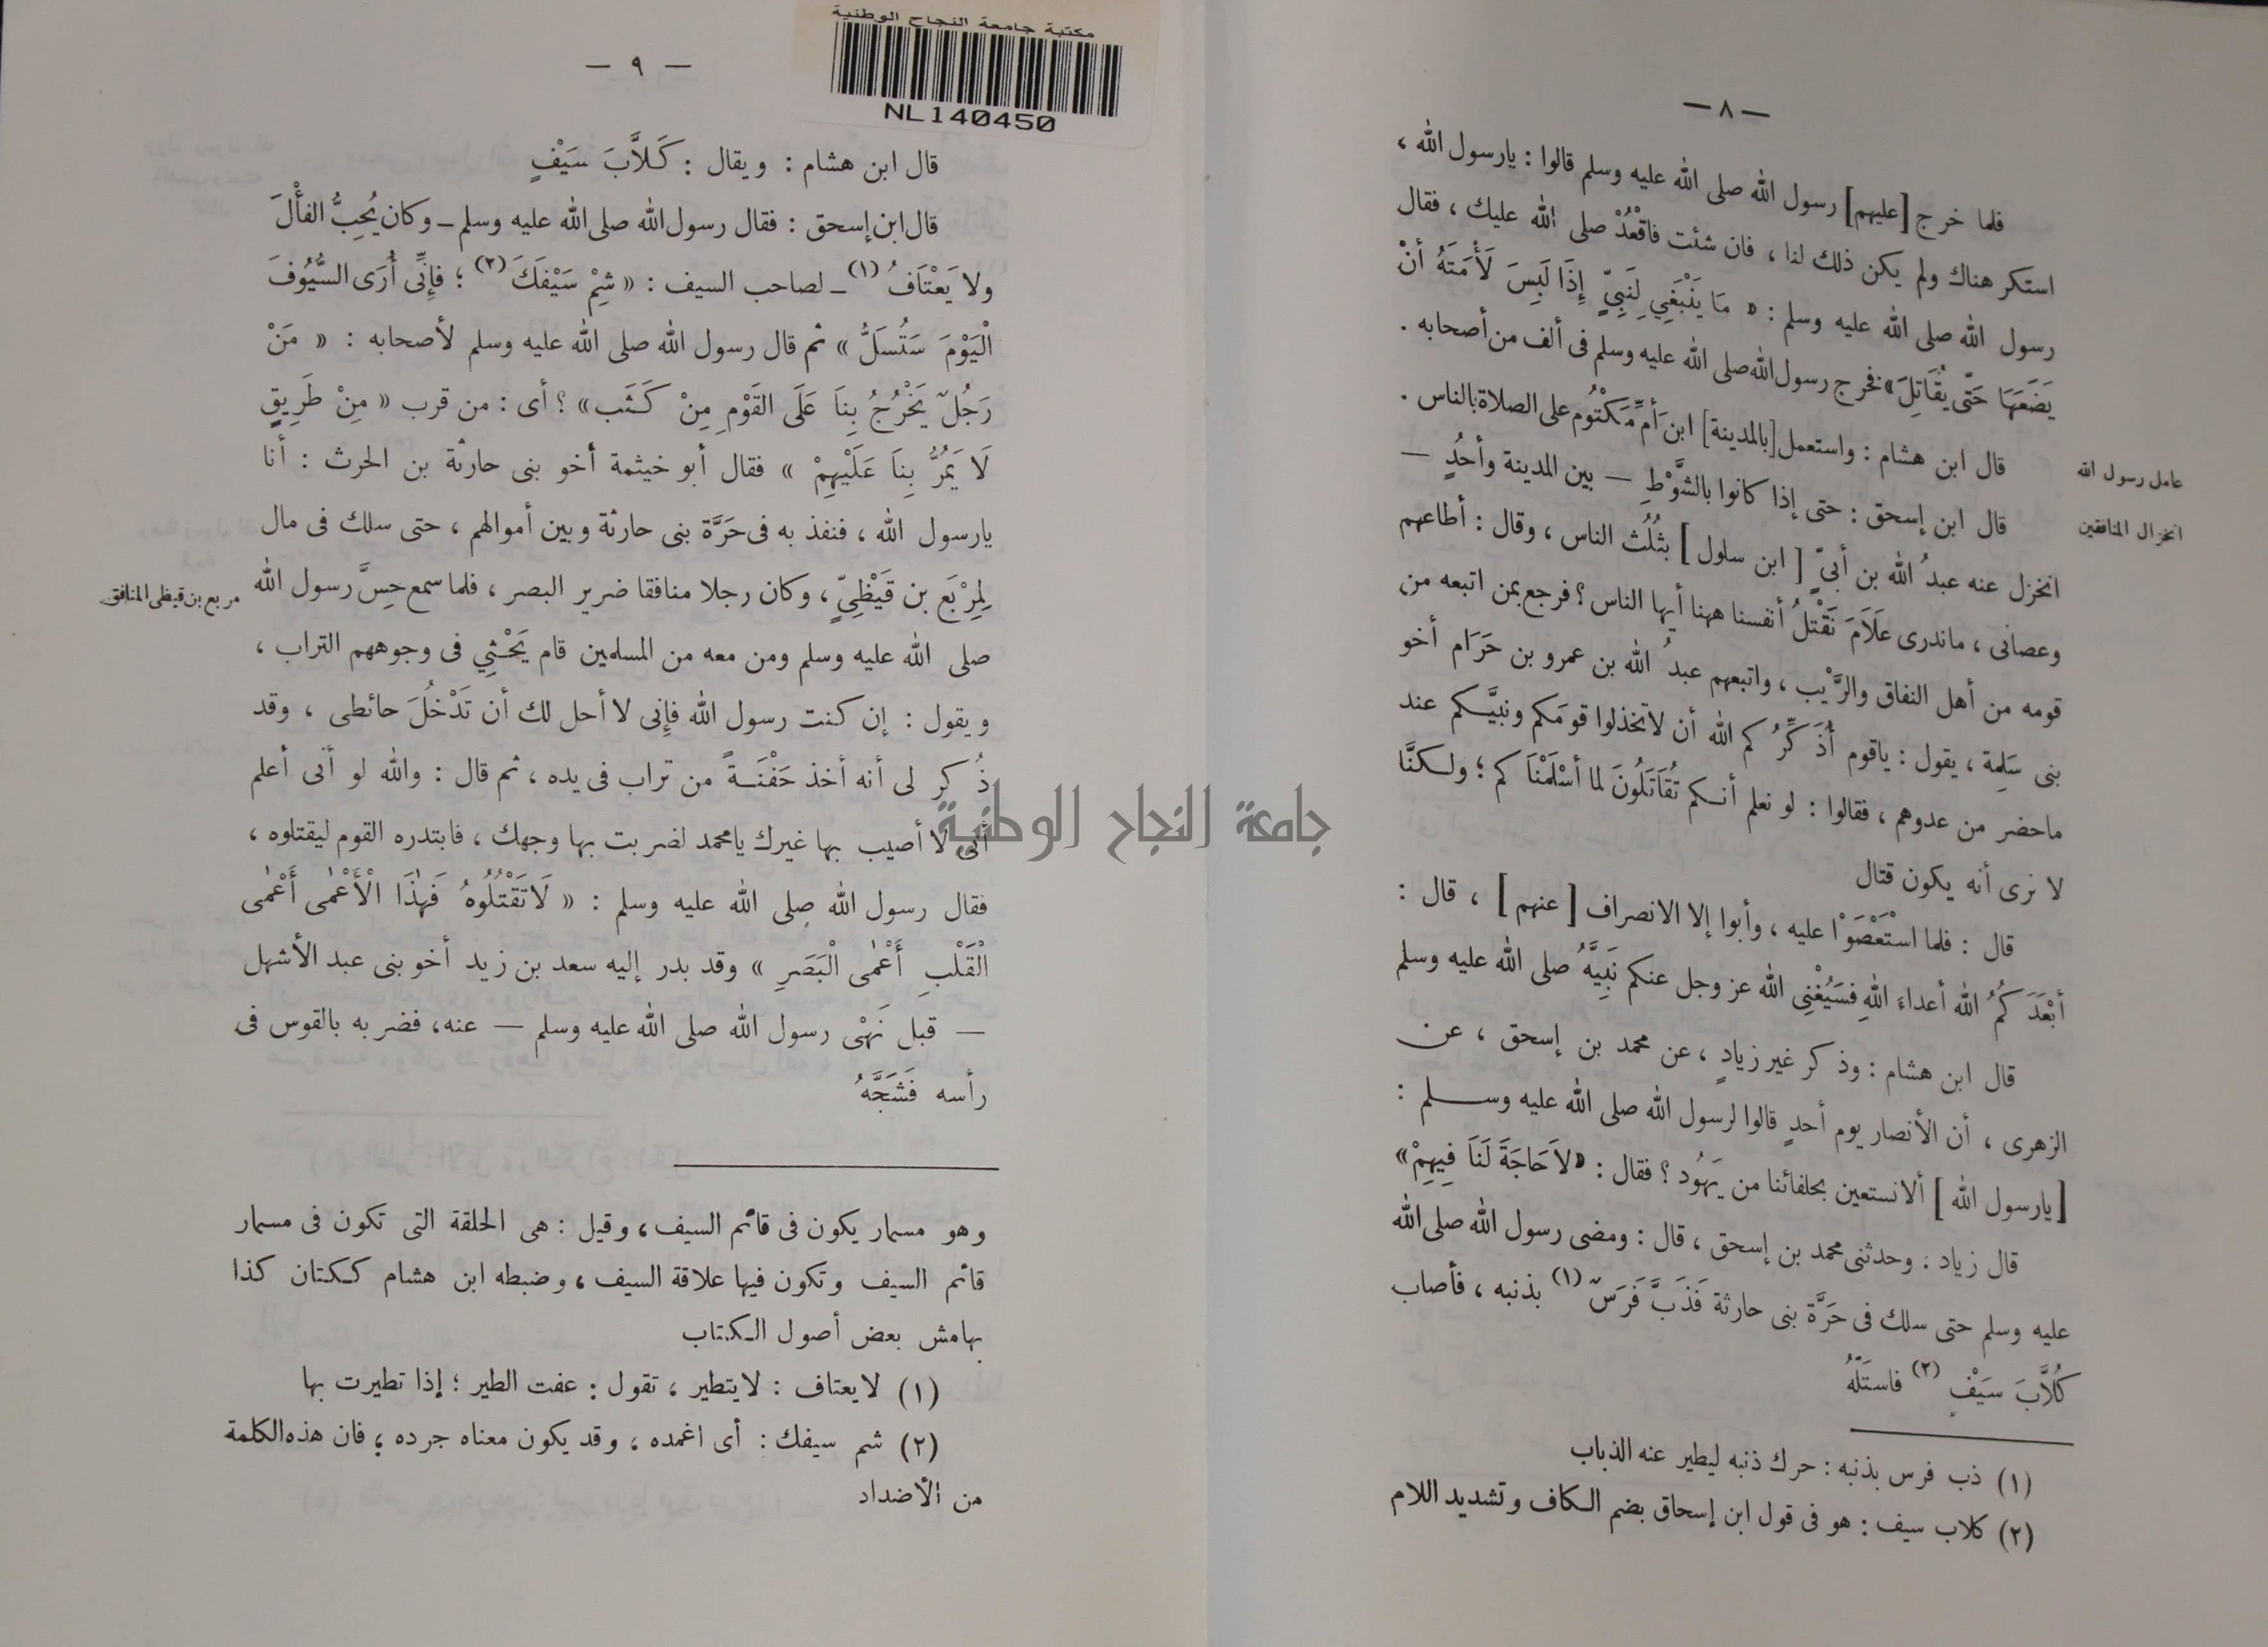 — ٨ —
فلما خرج [عليهم] رسول الله صلى الله عليه وسلم قالوا : يارسول الله ،
استكرهناك ولم يكن ذلك لنا ، فان شئت فاقْعُدْ صلى الله عليك ، فقال
رسول الله صلى الله عليه وسلم : « مَا يَنْبَغِي لِنَبِيٍّ إِذَا لَبِسَ لَأْمَتَهُ أَنْ
يَضَعَهَا حَتَّى يُقَاتِلَ » فخرج رسول الله صلى الله عليه وسلم فى ألف من أصحابه .
قال ابن هشام : واستعمل [بالمدينة] ابن أُمِّ مَكْتُوم على الصلاة بالناس .
عامل رسول الله
قال ابن إسحق : حتى إذا كانوا بالشَّوْطِ — بين المدينة وأحُدٍ —
انخزال المنافقين
انخزل عنه عبدُ الله بن أبىٍّ [ ابن سلول ] بثُلُث الناس ، وقال : أطاعهم
وعصانى ، ماندرى عَلَامَ نَقْتلُ أنفسنا ههنا أيها الناس ؟ فرجع بمن اتبعه من
قومه من أهل النفاق والرَّيْب ، واتبعهم عبدُ الله بن عمرو بن حَرَام أخو
بنى سَلِمة ، يقول : ياقوم أُذَكِّرُكم الله أن لاتخذلوا قومَكم ونبيَّكم عند
ماحضر من عدوهم ، فقالوا : لو نعلم أنكم تُقَاتَلُونَ لما أسْلَمْنَاكم ؛ ولكنَّا
لا نرى أنه يكون قتال
قال : فلما اسْتَعْصَوْا عليه ، وأبوا إلا الانصراف [ عنهم ] ، قال :
أَبْعَدَكُمُ الله أعداءَ اللهِ فسَيُغْنِى الله عز وجل عنكم نَبِيَّهُ صلى الله عليه وسلم
قال ابن هشام : وذكر غير زيادٍ ، عن محمد بن إسحق ، عن
الزهرى ، أن الأنصار يوم أحدٍ قالوا لرسول الله صلى الله عليه وسلم :
[ يارسول الله ] ألانستعين بحلفائنا من يَهُود ؟ فقال : « لاَ حَاجَةَ لَنَا فِيهِمْ »
قال زياد : وحدثنى محمد بن إسحق ، قال : ومضى رسول الله صلى الله
عليه وسلم حتى سلك فى حَرَّة بنى حارثة فَذَبَّ فَرَسٌ (١) بذنبه ، فأصاب
كُلاَّبَ سَيْفٍ (٢) فاستَلَّهُ
(١) ذب فرس بذنبه : حرك ذنبه ليطير عنه الذباب
(٢) كلاب سيف : هو فى قول ابن إسحاق بضم الكاف وتشديد اللام
مكتبة جامعة النجاح الوطنية
NL140450
— ٩ —
قال ابن هشام : ويقال : كَلاَّبَ سَيْفٍ
قال ابن إسحق : فقال رسول الله صلى الله عليه وسلم ــ وكان يُحِبُّ الفأْلَ
ولا يَعْتَافُ (١) ــ لصاحب السيف : « شِمْ سَيْفَكَ (٢) ؛ فإِنِّى أَرَى السُّيُوفَ
الْيَوْمَ سَتُسَلُّ » ثم قال رسول الله صلى الله عليه وسلم لأصحابه : « مَنْ
رَجُلٌ يَخْرُجُ بِنَا عَلَى القَوْمِ مِنْ كَثَب » ؟ أى : من قرب « مِنْ طَرِيقٍ
لَا يَمُرُّ بِنَا عَلَيْهِمْ » فقال أبو خيثمة أخو بنى حارثة بن الحرث : أنا
يارسول الله ، فنفذ به فى حَرَّة بنى حارثة وبين أموالهم ، حتى سلك فى مال
لِمِرْبَع بن قَيْظِىٍّ ، وكان رجلا منافقا ضرير البصر ، فلما سمع حِسَّ رسول الله
مربع بن قيظى المنافق
صلى الله عليه وسلم ومن معه من المسلمين قام يَحْثِي فى وجوههم التراب ،
ويقول : إن كنت رسول الله فإنى لا أحل لك أن تَدْخُلَ حائطى ، وقد
ذُكر لى أنه أخذ حَفْنَةً من تراب فى يده ، ثم قال : والله لو أنى أعلم
أنى لا أصيب بها غيرك يامحمد لضربت بها وجهك ، فابتدره القوم ليقتلوه ،
جامعة النجاح الوطنية
فقال رسول الله صلى الله عليه وسلم : « لَا تَقْتُلُوهُ فَهٰذَا الْأَعْمٰى أَعْمٰى
الْقَلْبِ أَعْمٰى الْبَصَرِ » وقد بدر إليه سعد بن زيد أخو بنى عبد الأشهل
— قبل نَهْىِ رسول الله صلى الله عليه وسلم — عنه، فضربه بالقوس فى
رأسه فَشَجَّهُ
وهو مسمار يكون فى قائم السيف ، وقيل : هى الحلقة التى تكون فى مسمار
قائم السيف وتكون فيها علاقة السيف ، وضبطه ابن هشام ككتان كذا
بهامش بعض أصول الكتاب
(١) لايعتاف : لايتطير ، تقول : عفت الطير ؛ إذا تطيرت بها
(٢) شم سيفك : أى اغمده ، وقد يكون معناه جرده ؛ فان هذه الكلمة
من الأضداد